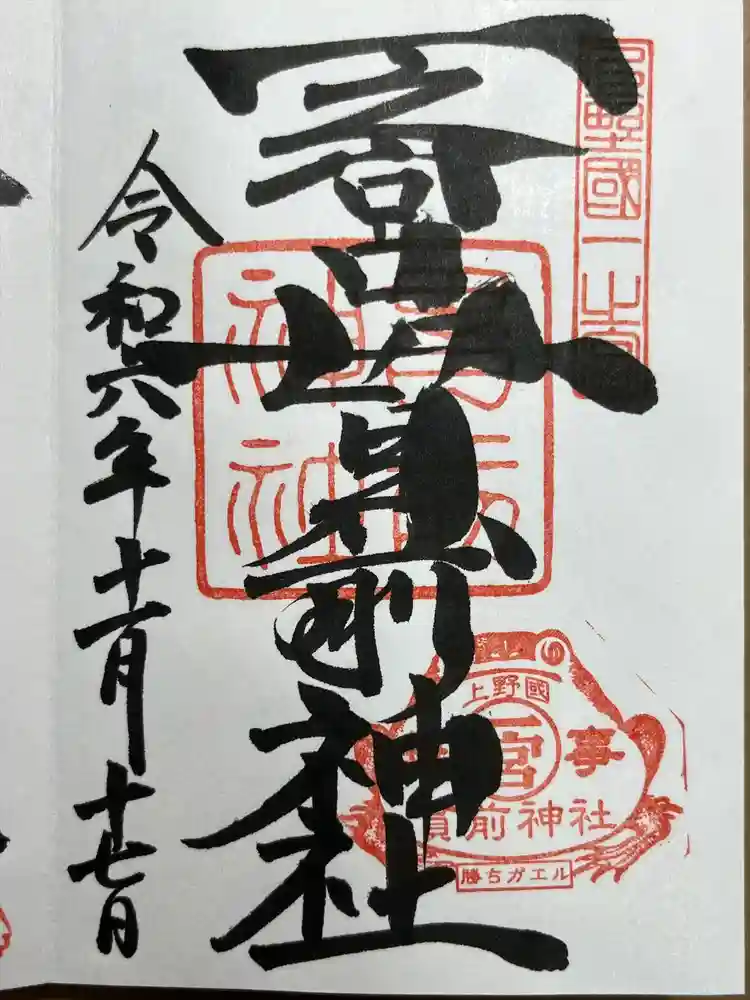 上野國一之宮
一之宮貫前神社
貫前神社
令和六年十一月十七日
上野國
一宮
事
貫前神社
勝ちガエル